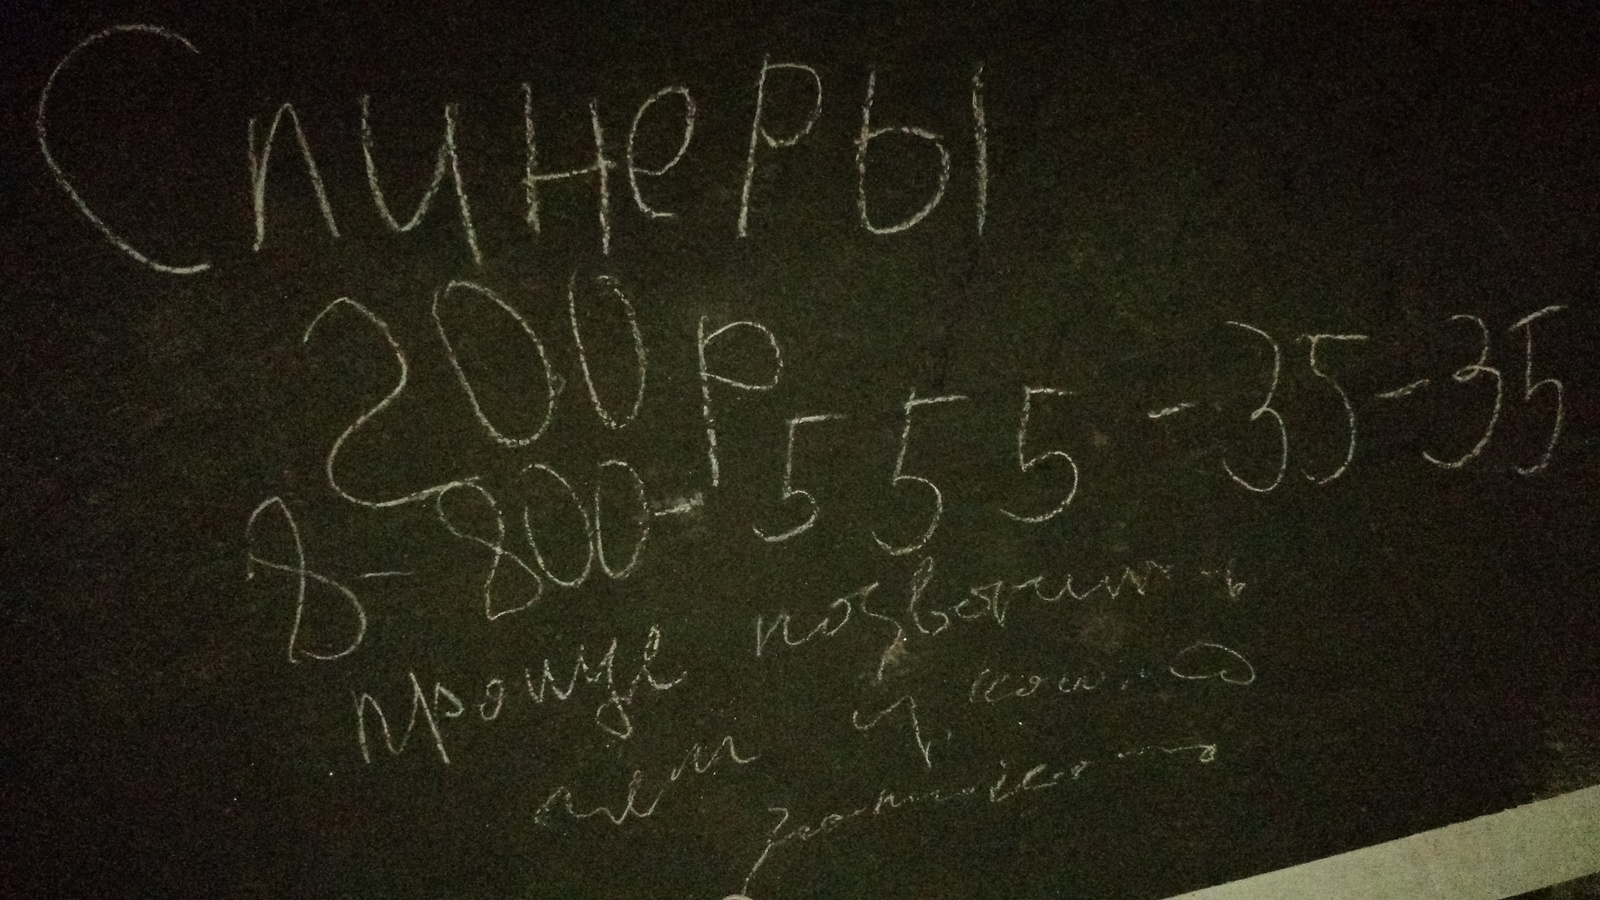 Спинеры
200р
8-800-555-35-35
проще позвонить
чем у кого-то
занимать